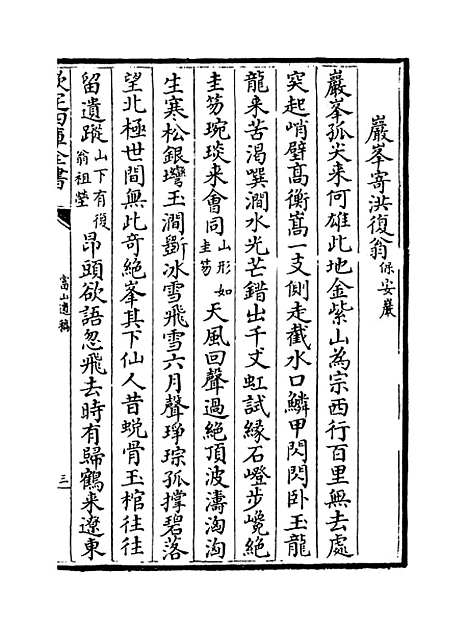 巖峯寄洪復翁保安巖
巖峯孤尖来何雄此地金紫山為宗西行百里無去處
突起峭壁髙衡嵩一支側走截水口鱗甲閃閃卧玉龍
龍来苦渴巽澗水光芒錯出千丈虹試縁石嶝步巉絶
圭笏琬琰来會同山形如圭笏天風回聲過絶頂波濤洶洶
生寒松銀灣玉澗斷冰雪飛雪六月聲琤琮孤撑碧落
望北極世間無此奇絶峯其下仙人昔蜕骨玉棺往往
留遺蹤山下有復翁祖塋昂頭欲語忽飛去時有歸鶴来遼東
欽定四庫全書
富山遺稿
三